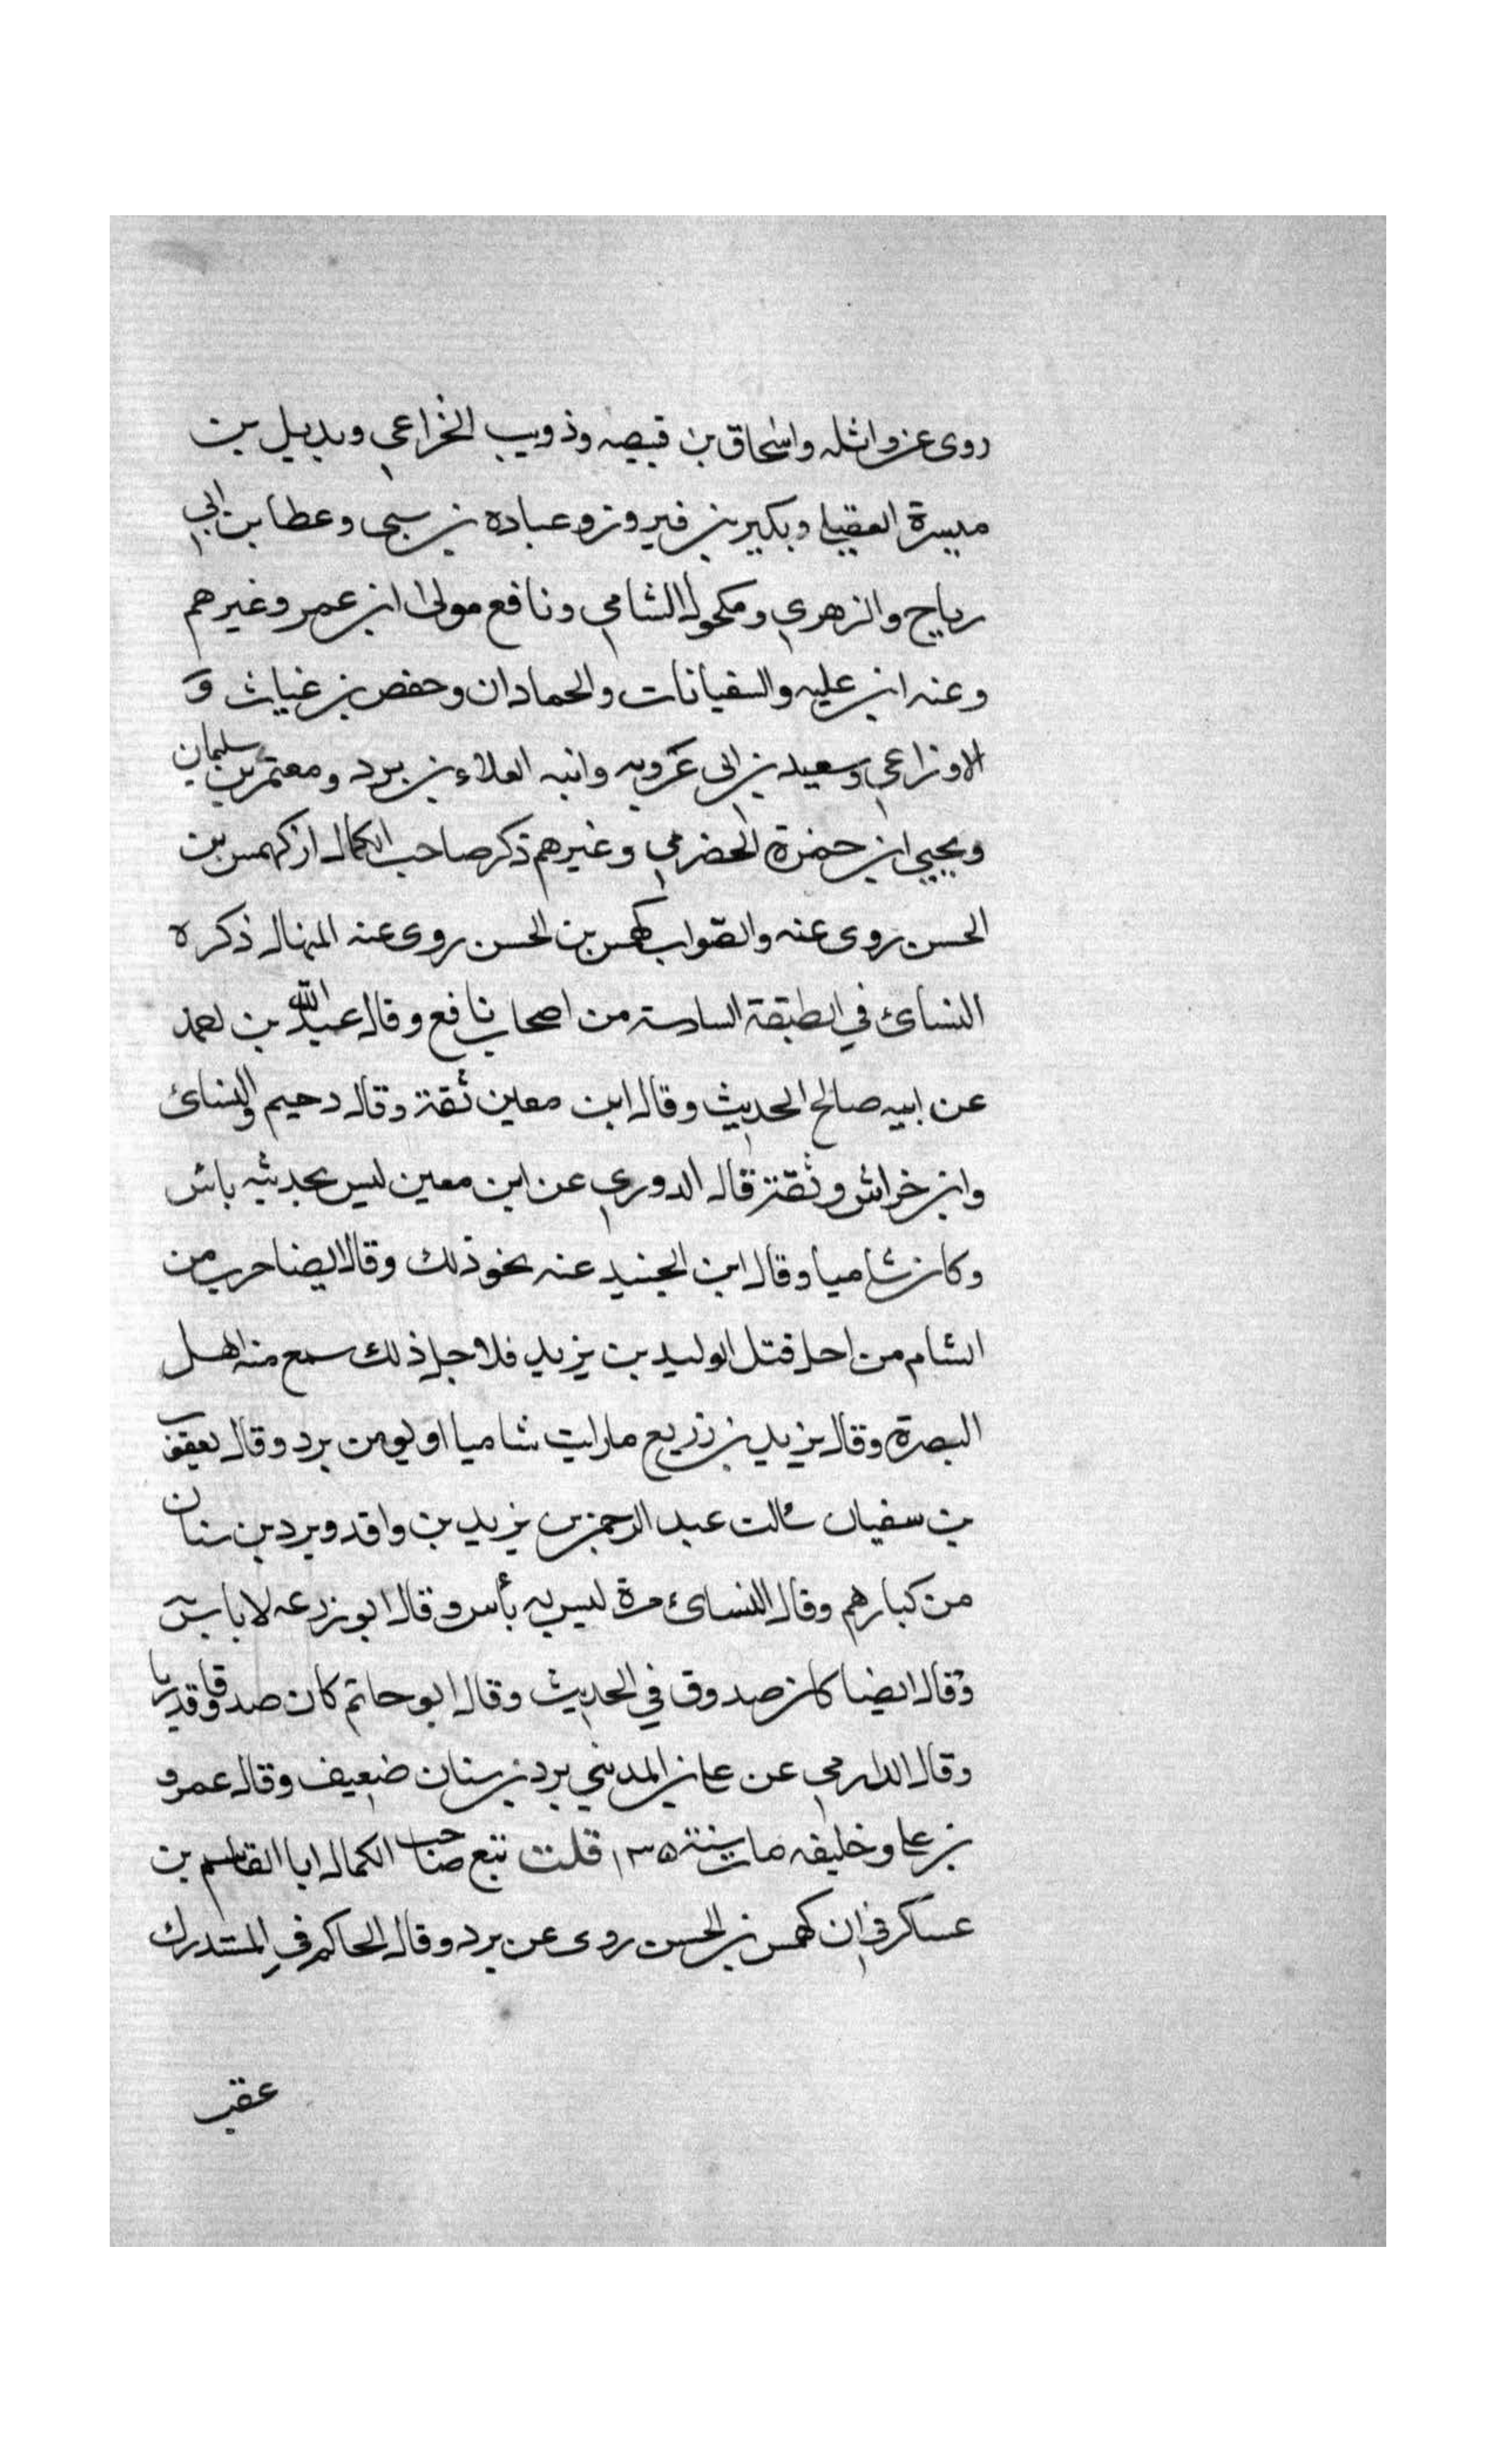 روى عن واثله واسحاق بن قبيصه وذويب الخزاعي وبديل بن
ميسرة العقيلي وبكير بن فيروز وعباده بن نسي وعطا بن ابي
رباح والزهري ومكحول الشامي ونافع مولى ابن عمر وغيرهم
وعنه ابن عليه والسفيانات والحمادان وحفص بن غياث و
الاوزاعي وسعيد بن ابى عروبه وابنه العلاء بن برد ومعتمر بن سليمان
ويحيي ابن حمزة الحضرمي وغيرهم ذكر صاحب الكمال ان كهمس بن
الحسن روى عنه والصواب كهمس بن الحسن روى عنه المنهال ذكره
النسائ في الطبقة السادسة من اصحاب نافع وقال عبد الله بن احمد
عن ابيه صالح الحديث وقال ابن معين ثقة وقال دحيم والنسائ
وابن خراش وثقة قال الدوري عن ابن معين ليس بحديثه باس
وكان شاميا وقال ابن الجنيد عنه نحو ذلك وقال ايضا هرب من
الشام من اجل قتل الوليد بن يزيد فلاجل ذلك سمع منه اهل
البصرة وقال يزيد بن زريع ما رايت شاميا اوثق من برد وقال يعقوب
بن سفيان سالت عبد الرحمن بن يزيد بن واقد وبرد بن سنان
من كبارهم وقال النسائ مرة ليس به بأس وقال ابو زرعه لا باس به
وقال ايضا كان صدوق في الحديث وقال ابو حاتم كان صدوقا وقدريا
وقال الدارمي عن علي بن المديني برد بن سنان ضعيف وقال عمرو
بن علي وخليفه مات سنة ١٣٥ قلت تبع صاحب الكمال ابا القاسم بن
عساكر في ان كهمس بن الحسن روى عن برد وقال الحاكم في المستدرك
عقب